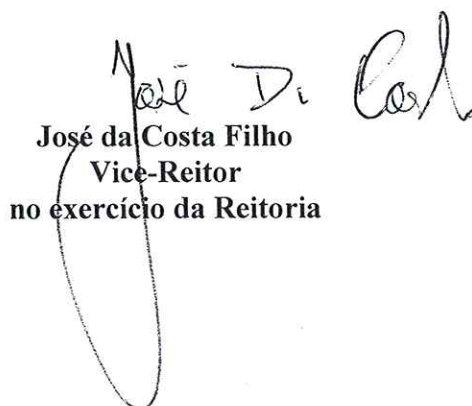 José Da Cost
José da Costa Filho
Vice-Reitor
no exercício da Reitoria